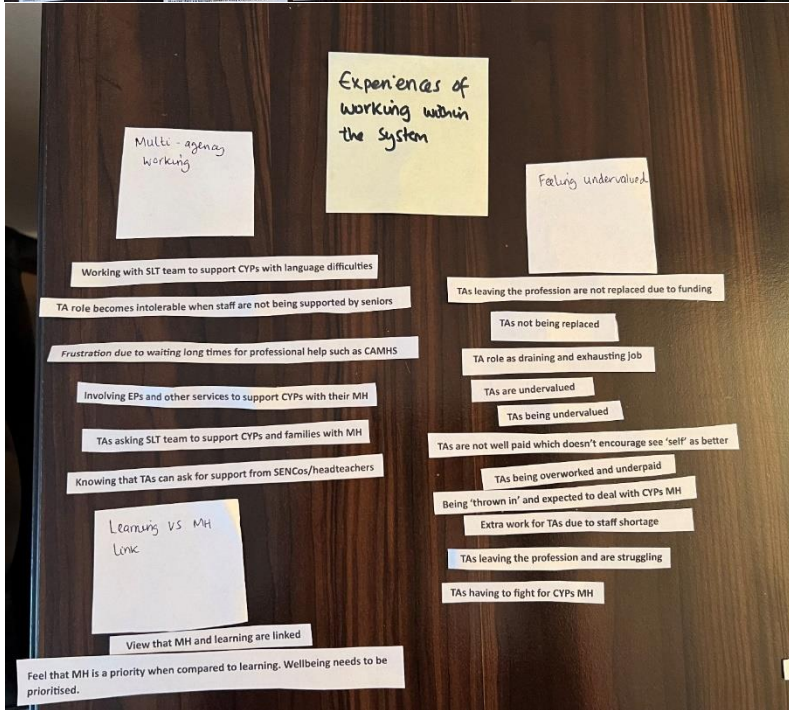 Experiences of
working within
the system
Multi-agency
working
Working with SLT team to support CYPs with language difficulties
TA role becomes intolerable when staff are not being supported by seniors
Frustration due to waiting long times for professional help such as CAMHS
Involving EPs and other services to support CYPs with their MH
TAs asking SLT team to support CYPs and families with MH
Knowing that TAs can ask for support from SENCos/headteachers
Learning VS MH
Link
View that MH and learning are linked
Feel that MH is a priority when compared to learning. Wellbeing needs to be
prioritised.
Feeling undervalued
TAs leaving the profession are not replaced due to funding
TAs not being replaced
TA role as draining and exhausting job
TAs are undervalued
TAs being undervalued
TAs are not well paid which doesn't encourage see 'self' as better
TAs being overworked and underpaid
Being 'thrown in' and expected to deal with CYPs MH
Extra work for TAs due to staff shortage
TAs leaving the profession and are struggling
TAs having to fight for CYPs MH